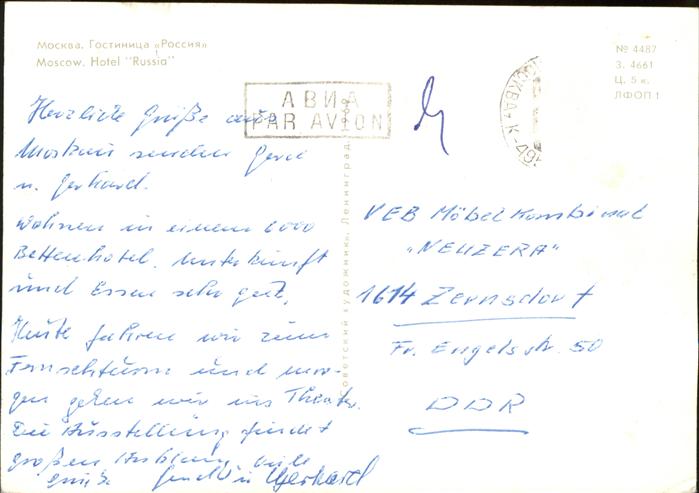 Москва. Гостиница „Россия“
Moscow. Hotel "Russia"
№ 4487
З. 4661
Ц. 5 к.
ЛФОП 1
АВИА
PAR AVION
МОСКВА, К-49
Советский художник, Ленинград, 1969
Herzliche Grüße aus
Moskau senden Gerd
u. Gerhard.
Wohnen in einem 6000
Bettenhotel. Unterkunft
und Essen sehr gut.
Heute fahren wir zum
Fernsehturm und mor-
gen gehen wir ins Theater.
Die Ausstellung findet
großen Anklang. Viele
Grüße Gerhard
VEB Möbelkombinat
„NEUZERA“
1614 Zernsdorf
Fr. Engelsstr. 50
DDR